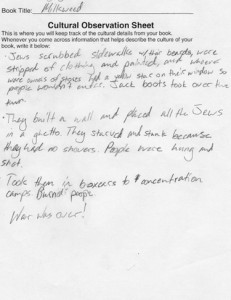 Book Title: Milkweed
Cultural Observation Sheet
This is where you will keep track of the cultural details from your book.
Whenever you come across information that helps describe the culture of your
book, write it below:
• Jews scrubbed sidewalks w/ their beards, were
stripped of clothing, and painted, and whoever
were owners of stores had a yellow star on their window so
people wouldn't enter. Jack boots took over the
town
• They built a wall and placed all the Jews
in a ghetto. They starved and stank because
they had no showers. People were hung and
shot.
Took them in boxcars to concentration
camps. Burned people.
War was over!